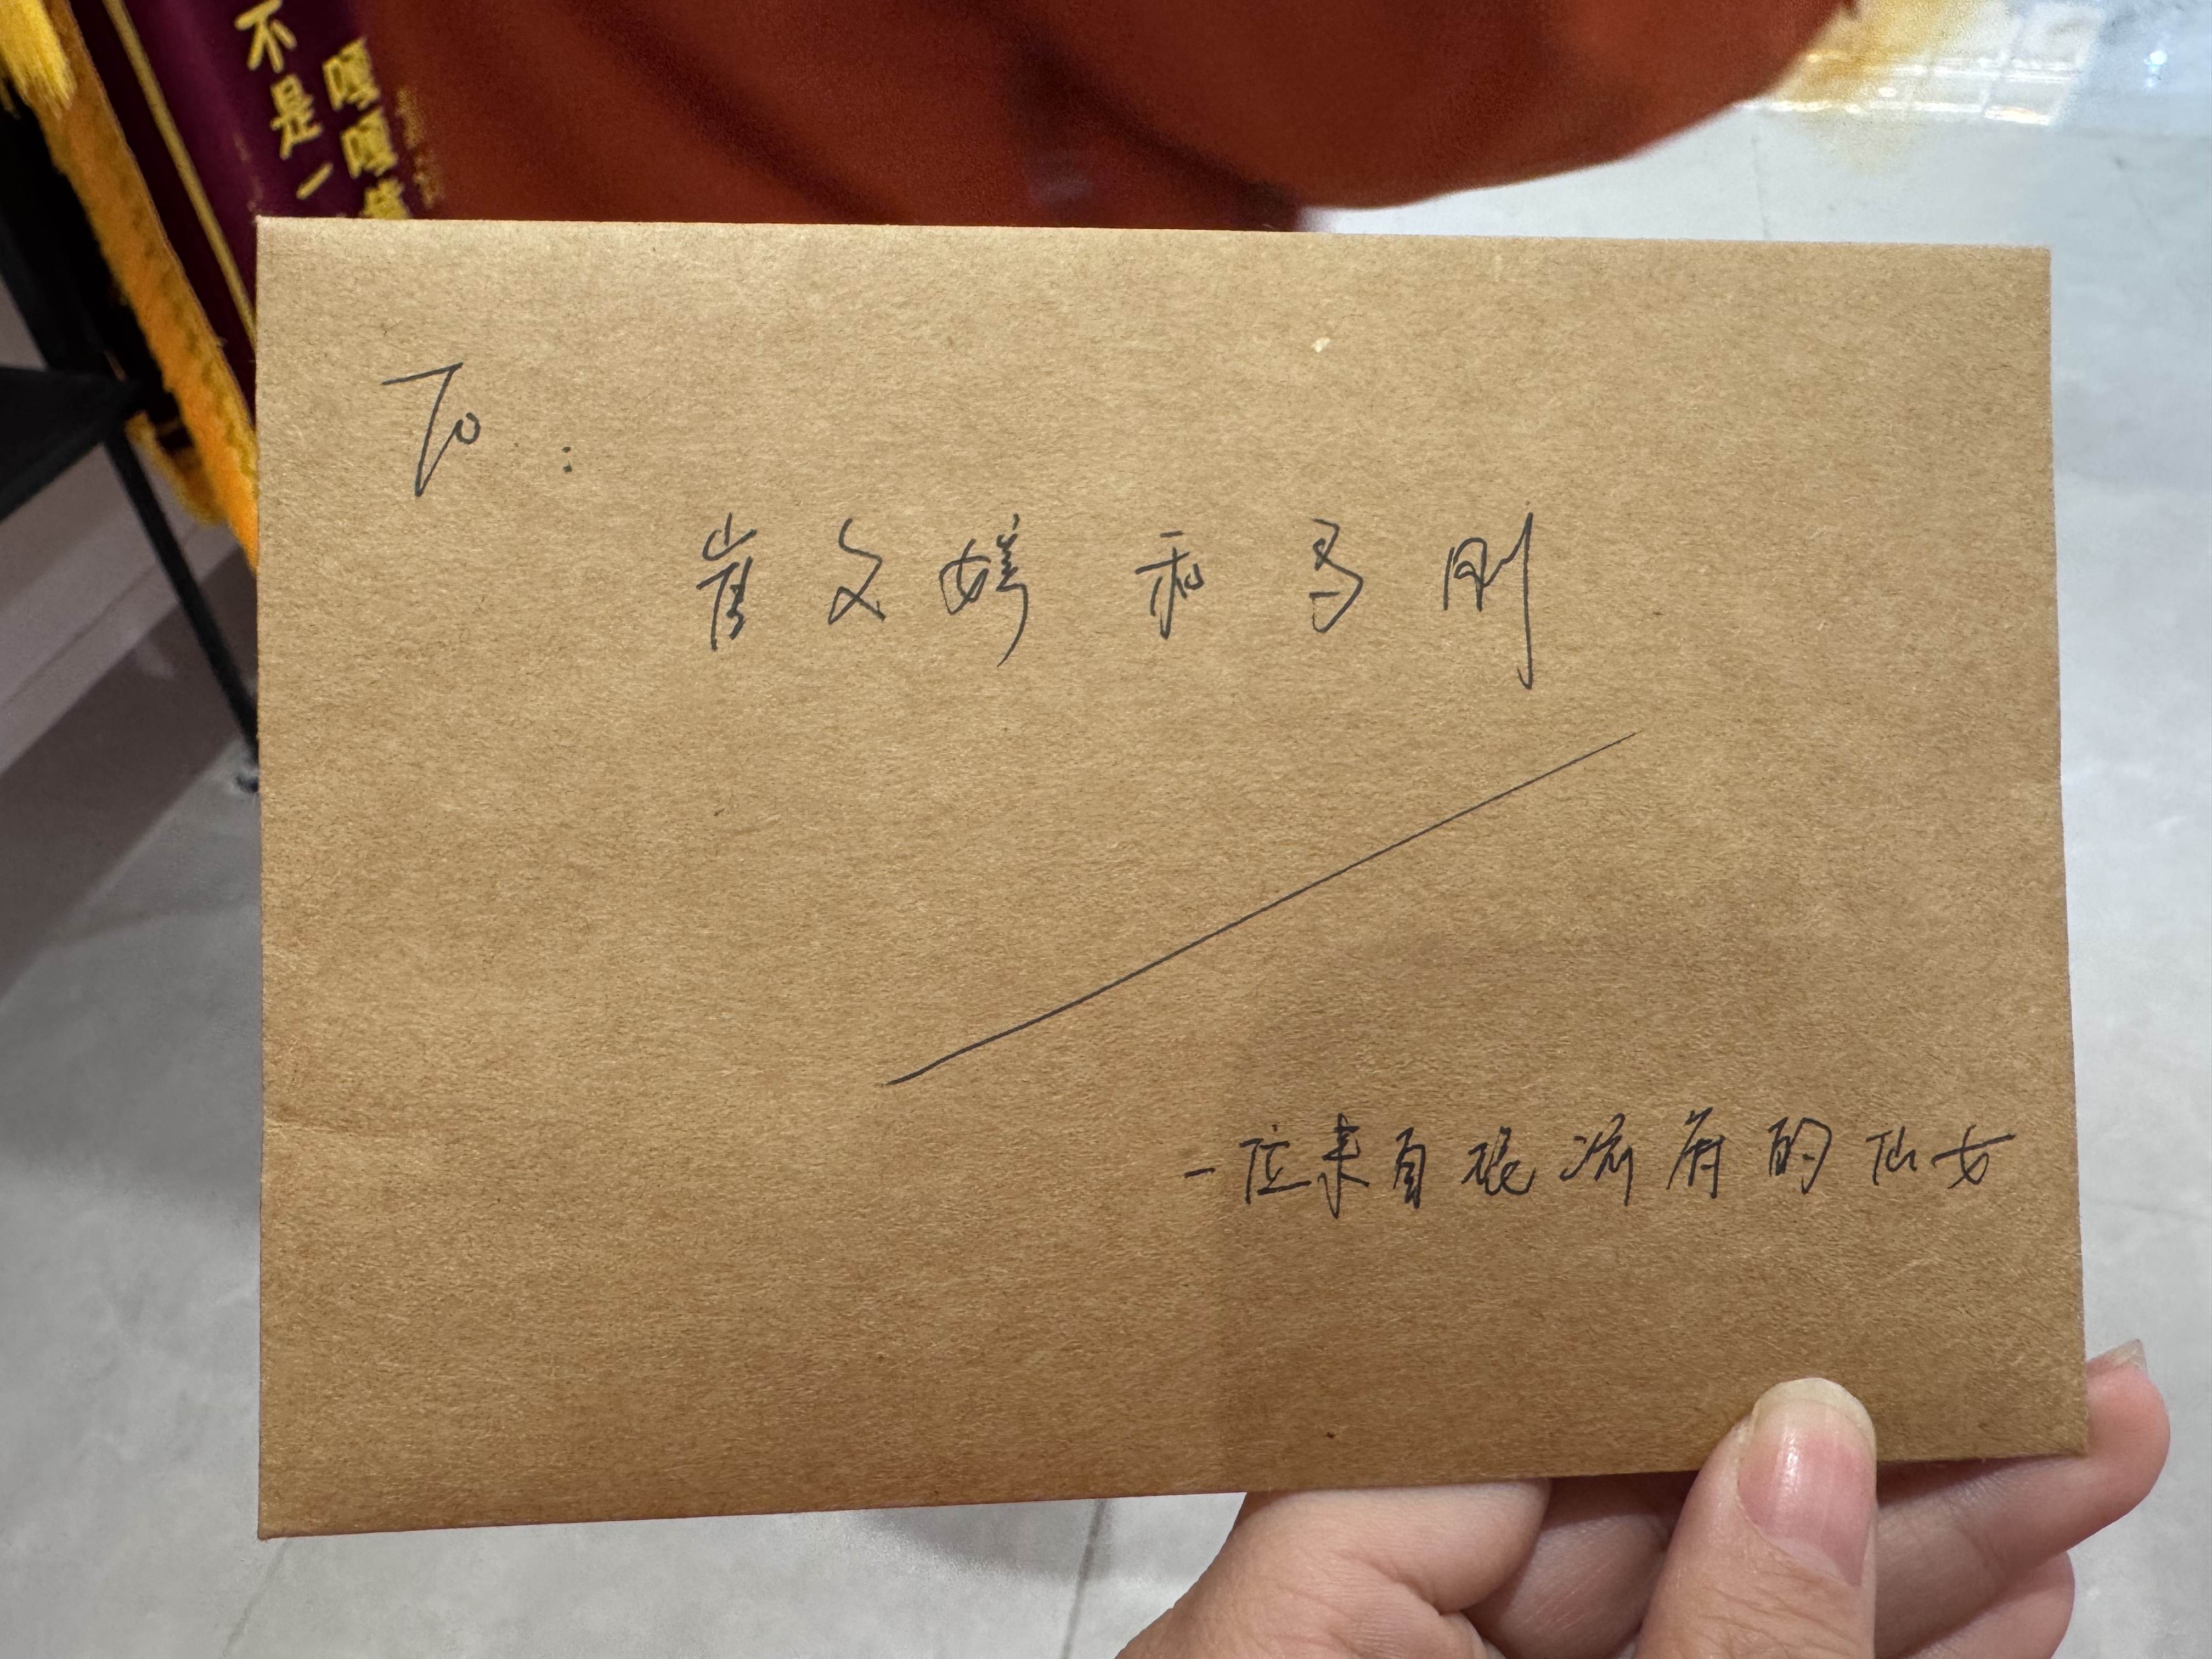 不是一
嘎嘎
To:
崔文娉和马刚
一位来自根流府的仙女